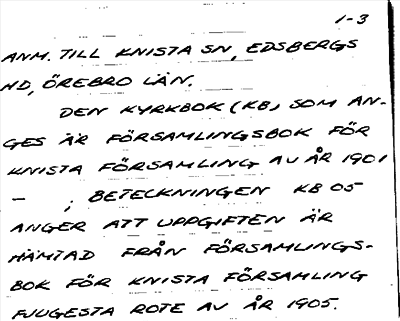 1-3
ANM. TILL KNISTA SN, EDSBERGS
HD, ÖREBRO LÄN.
DEN KYRKBOK (KB) SOM AN-
GES ÄR FÖRSAMLINGSBOK FÖR
KNISTA FÖRSAMLING AV ÅR 1901
- ; BETECKNINGEN KB 05
ANGER ATT UPPGIFTEN ÄR
HÄMTAD FRÅN FÖRSAMLINGS-
BOK FÖR KNISTA FÖRSAMLING
FJUGESTA ROTE AV ÅR 1905.